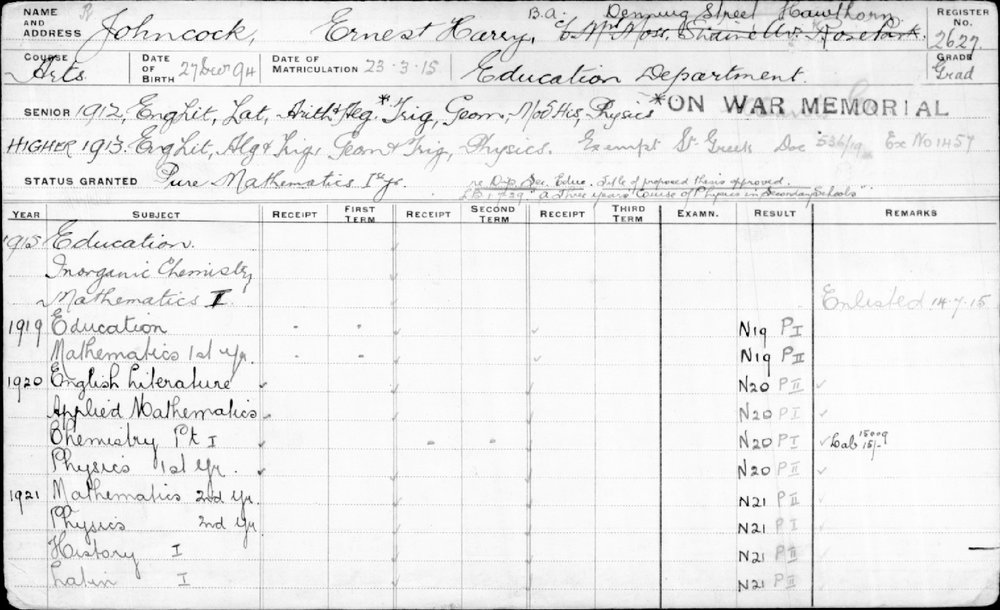 B.A. Denning Street Hawthorn
NAME AND ADDRESS Johncock, Ernest Harry, C/o Mrs Moss, Rose Park. REGISTER No. 2627
COURSE Arts DATE OF BIRTH 27 Dec 94 DATE OF MATRICULATION 23-3-15 Education Department. GRADE Grad
SENIOR 1912, Eng Lit, Lat, Arith & Alg* Trig, Geom, Mod His, Physics *ON WAR MEMORIAL
HIGHER 1913. Eng Lit, Alg & Trig, Geom & Trig, Physics. Exempt St. Greek Doc 536/19 Ex No 1457
STATUS GRANTED Pure Mathematics 1st yr. re Dip. Sec. Educ. Title of proposed thesis approved.
"A Three years Course of Physics in Secondary Schools"
YEAR SUBJECT RECEIPT FIRST TERM RECEIPT SECOND TERM RECEIPT THIRD TERM EXAMN. RESULT REMARKS
1915 Education.
Inorganic Chemistry
Mathematics I Enlisted 14.7.15
1919 Education N19 P I
Mathematics 1st yr. N19 P II
1920 English Literature N20 P II
Applied Mathematics N20 P I
Chemistry Pt I N20 P I Lab 15009 15/-
Physics 1st yr. N20 P II
1921 Mathematics 2nd yr. N21 P II
Physics 2nd yr N21 P I
History I N21 P II
Latin I N21 P II